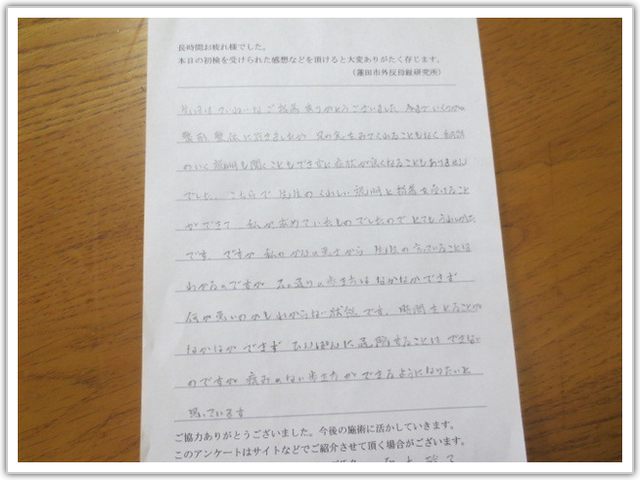 長時間お疲れ様でした。
本日の初検を受けられた感想などを頂けると大変ありがたく存じます。
（蓮田市外反母趾研究所）
先日は ていねいなご指導ありがとうございました 今まで いくつか
整形 整体に行きましたが 足の先をみてくれることもなく 納得
のいく説明も聞くこともできずに症状が良くなることもありません
でした。こちらで 先生の くわしい 説明と指導を受けること
ができて 私が求めていたものでしたので とても うれしかった
です。ですが 私の から 先生の 言っていることは
わかるのですが 思い通りの歩き方は なかなかできず
何が悪いのかもわからない状態です。時間をとることが
なかなか できず ひんぱんに 通院することは できない
のですが 痛みのない歩き方が できるようになりたいと
思っています
ご協力ありがとうございました。今後の施術に活かしていきます。
このアンケートはサイトなどでご紹介させて頂く場合がございます。